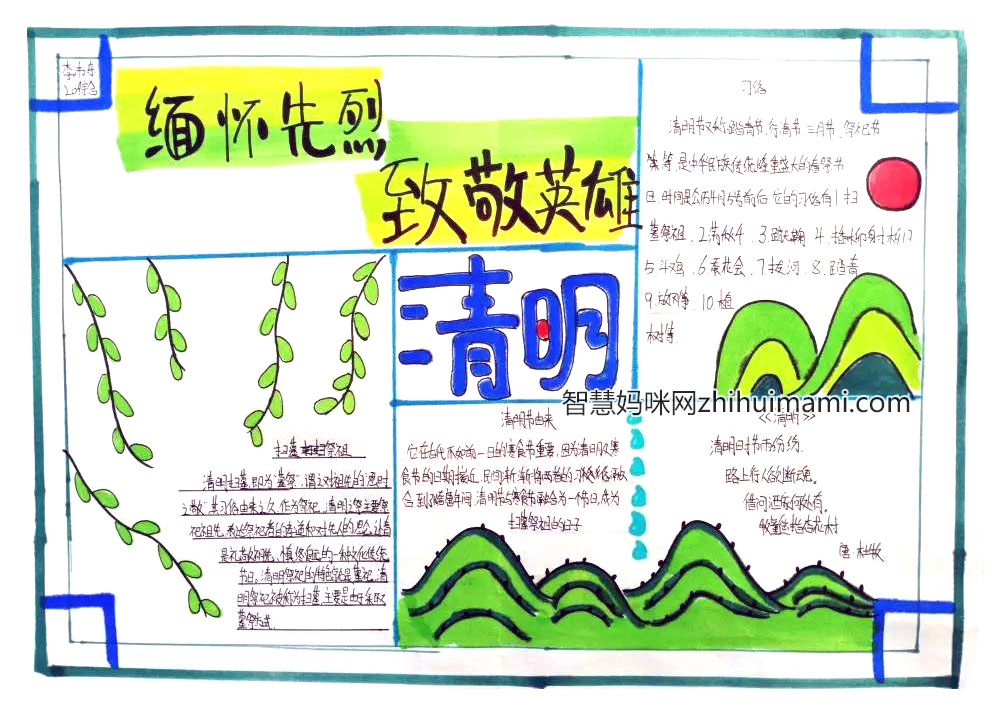 缅怀先烈
致敬英雄
习俗
清明节又称踏青节、行清节、三月节、祭祀节
等,是中华民族传统隆重盛大的春祭节
日,时间是公历4月5号前后,它的习俗有1.扫
墓祭祖、2.荡秋千、3.蹴鞠、4.插柳射柳
5.斗鸡、6.蚕花会、7.拔河、8.踏青
9.放风筝、10.植
树等
清明
智慧妈咪网zhihuimami.com
扫墓祭祖
清明扫墓,即为"墓祭",谓之对祖先的"思时
之敬",其习俗由来已久,作为祭祀,清明之祭主要祭
祀祖先,表达祭祀者的孝道和对先人的思念之情
是礼敬祖先、慎终追远的一种文化传统
节日。清明祭祀的特色就是墓祀,清
明祭祀被称为扫墓,主要是由于采取
墓祭方式
清明节由来
它在古代不如前一日的寒食节重要,因为清明及寒
食节的日期接近,民间渐渐将两者的习俗融
合,到了隋唐年间,清明节与寒食节融合为一个节日,成为
扫墓祭祖的日子
《清明》
清明时节雨纷纷,
路上行人欲断魂。
借问酒家何处有,
牧童遥指杏花村
唐 杜牧